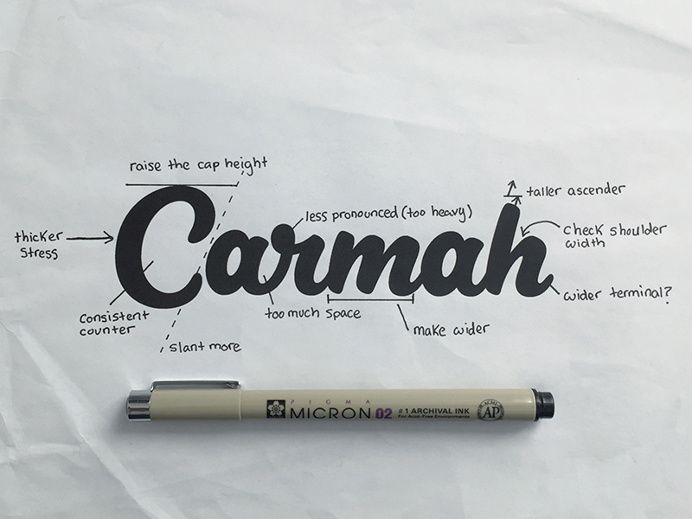 raise the cap height
taller ascender
less pronounced (too heavy)
check shoulder
width
thicker
stress
Carmah
wider terminal?
consistent
counter
too much space
make wider
slant more
PIGMA
MICRON 02
#1 ARCHIVAL INK
For Acid-Free Environments
AP